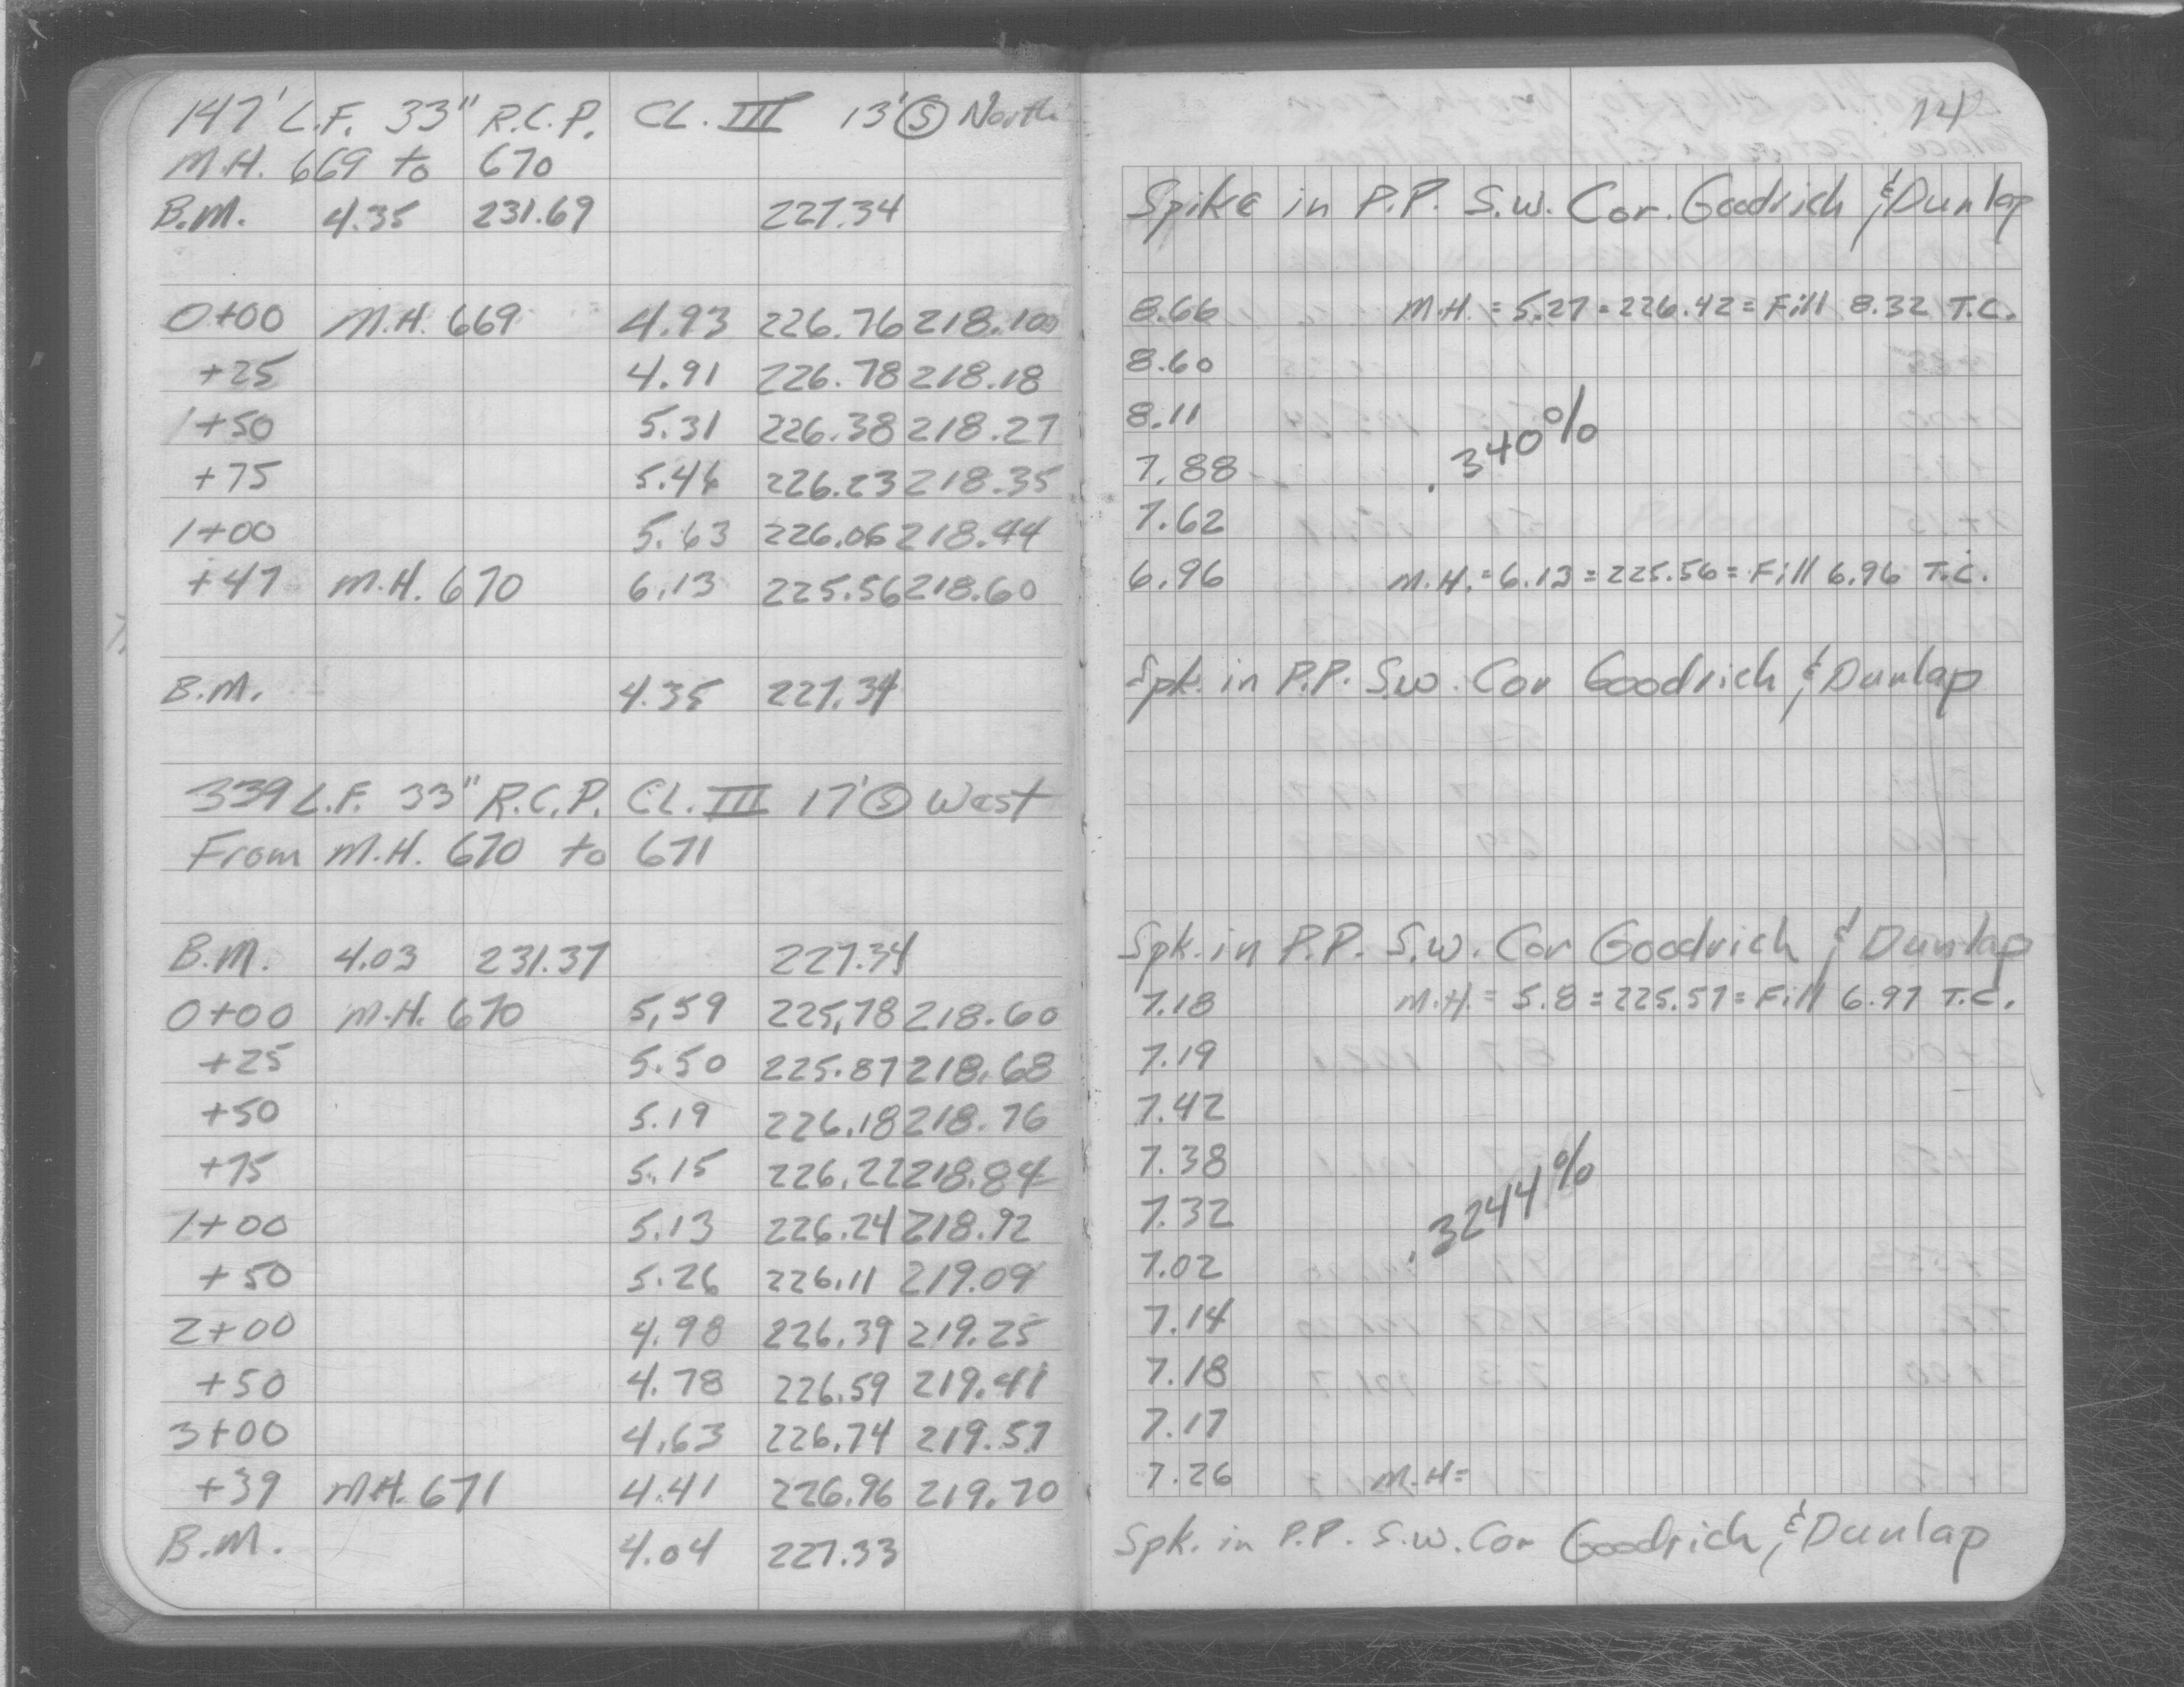 147' L.F. 33" R.C.P. CL. III 13' Ⓢ North
M.H. 669 to 670
B.M. 4.35 231.69 227.34
0+00 M.H. 669 4.93 226.76 218.100
+25 4.91 226.78 218.18
1+50 5.31 226.38 218.27
+75 5.46 226.23 218.35
1+00 5.63 226.06 218.44
+47 M.H. 670 6.13 225.56 218.60
B.M. 4.35 227.34
339 L.F. 33" R.C.P. CL. III 17' Ⓢ West
From M.H. 670 to 671
B.M. 4.03 231.37 227.34
0+00 M.H. 670 5,59 225,78 218.60
+25 5.50 225.87 218.68
+50 5.19 226.18 218.76
+75 5.15 226.22 218.84
1+00 5.13 226.24 218.92
+50 5.26 226.11 219.09
2+00 4.98 226.39 219.25
+50 4.78 226.59 219.41
3+00 4.63 226.74 219.57
+39 M.H. 671 4.41 226.96 219.70
B.M. 4.04 227.33
142
Spike in P.P. S.W. Cor. Goodrich & Dunlap
8.66 M.H. = 5.27 = 226.42 = Fill 8.32 T.C.
8.60
8.11
.340%
7.88
7.62
6.96 M.H. = 6.13 = 225.56 = Fill 6.96 T.C.
Spk. in P.P. S.W. Cor Goodrich & Dunlap
Spk. in P.P. S.W. Cor Goodrich & Dunlap
7.18 M.H. = 5.8 = 225.57 = Fill 6.97 T.C.
7.19
7.42
7.38
7.32
.3244%
7.02
7.14
7.18
7.17
7.26 M.H=
Spk. in P.P. S.W. Cor Goodrich & Dunlap